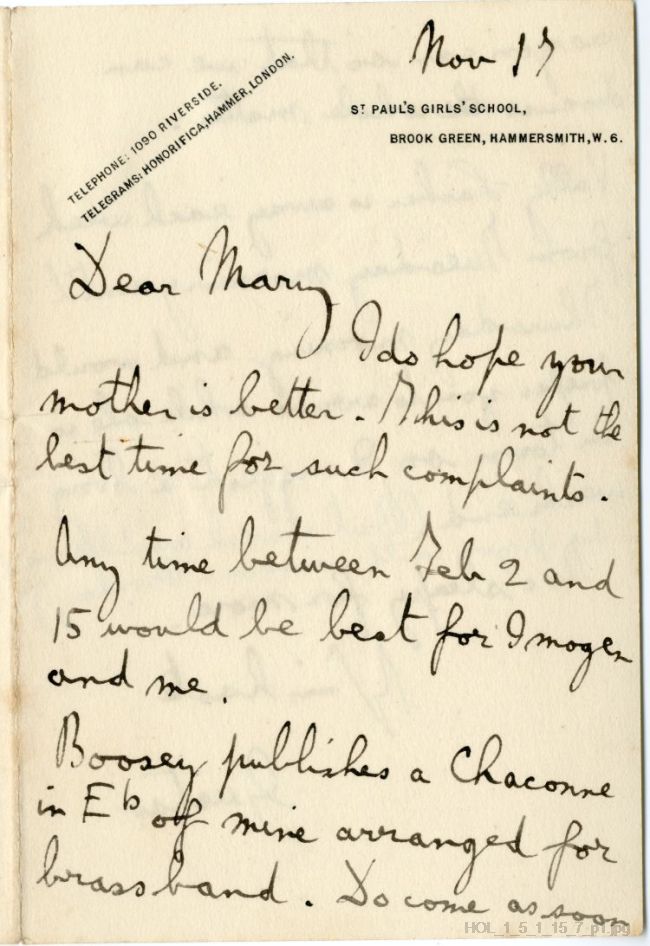 Nov 17
TELEPHONE: 1090 RIVERSIDE.
TELEGRAMS: HONORIFICA, HAMMER, LONDON.
ST PAUL'S GIRLS' SCHOOL,
BROOK GREEN, HAMMERSMITH, W. 6.
Dear Mary
I do hope your
mother is better. This is not the
best time for such complaints.
Any time between Feb 2 and
15 would be best for Imogen
and me.
Boosey publishes a Chaconne
in E♭ of mine arranged for
brass band. Do come as soon
HOL_1_5_1_15_7_p1.jpg